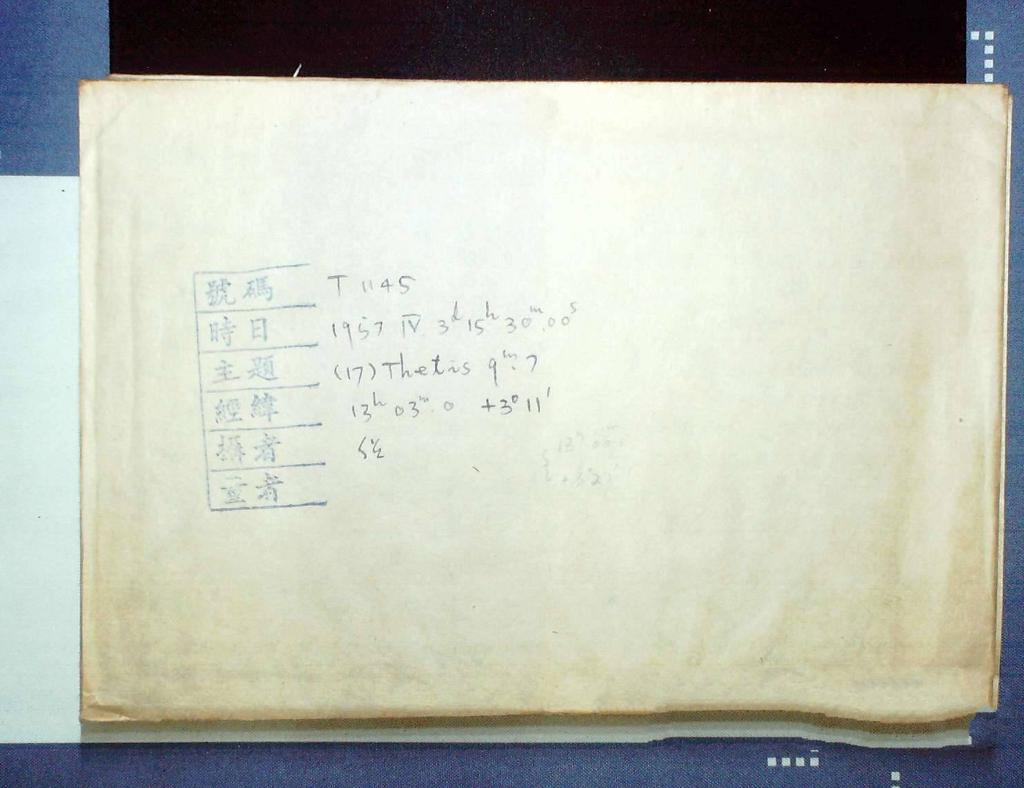 號碼 T 1145
時日 1957 IV 3ᵈ 15ʰ 30ᵐ.00ˢ
主題 (17) Thetis 9ᵐ.7
經緯 13ʰ 03ᵐ.0 +3° 11′
攝者
者